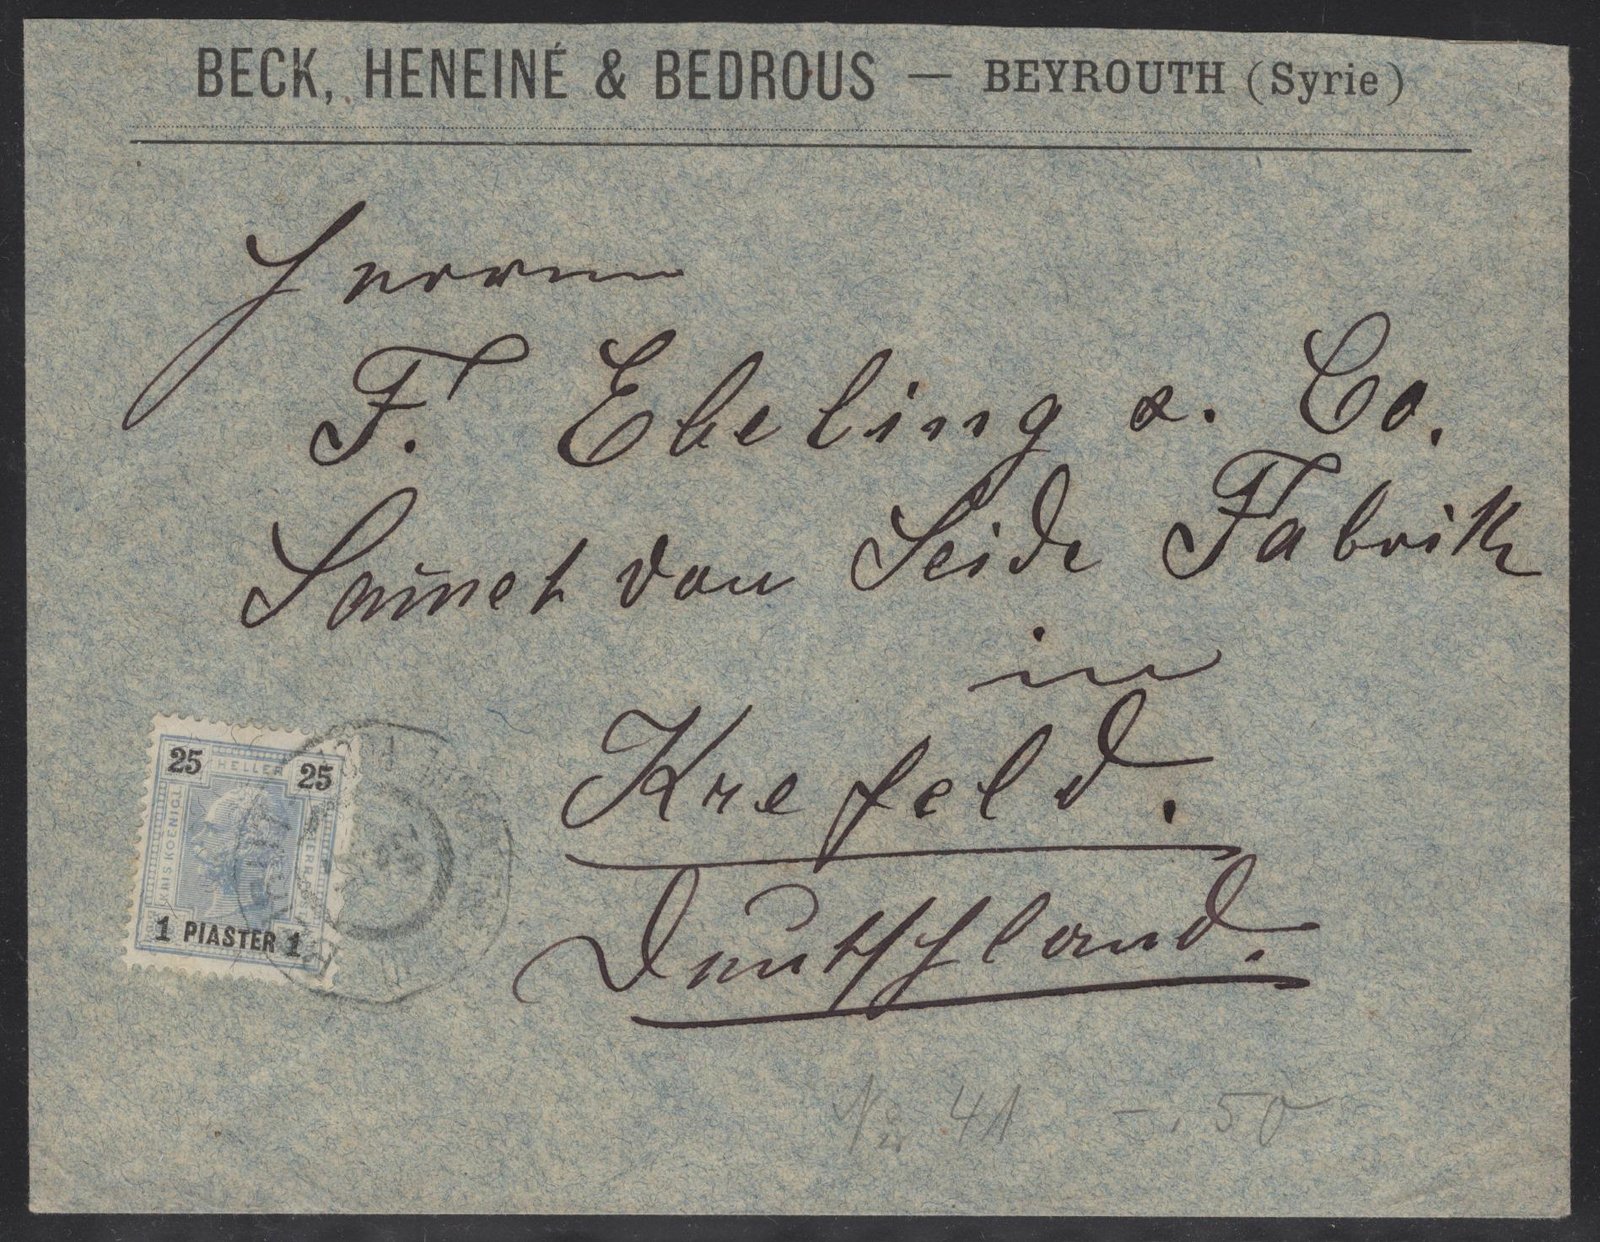 BECK, HENEINÉ & BEDROUS — BEYROUTH (Syrie)
Herrn
F. Ebeling & Co.
Samet von Seide Fabrik
in
Krefeld.
Deutschland.
25 HELLER 25
KAIS. KOENIGL.
1 PIASTER 1
No 41 -.50